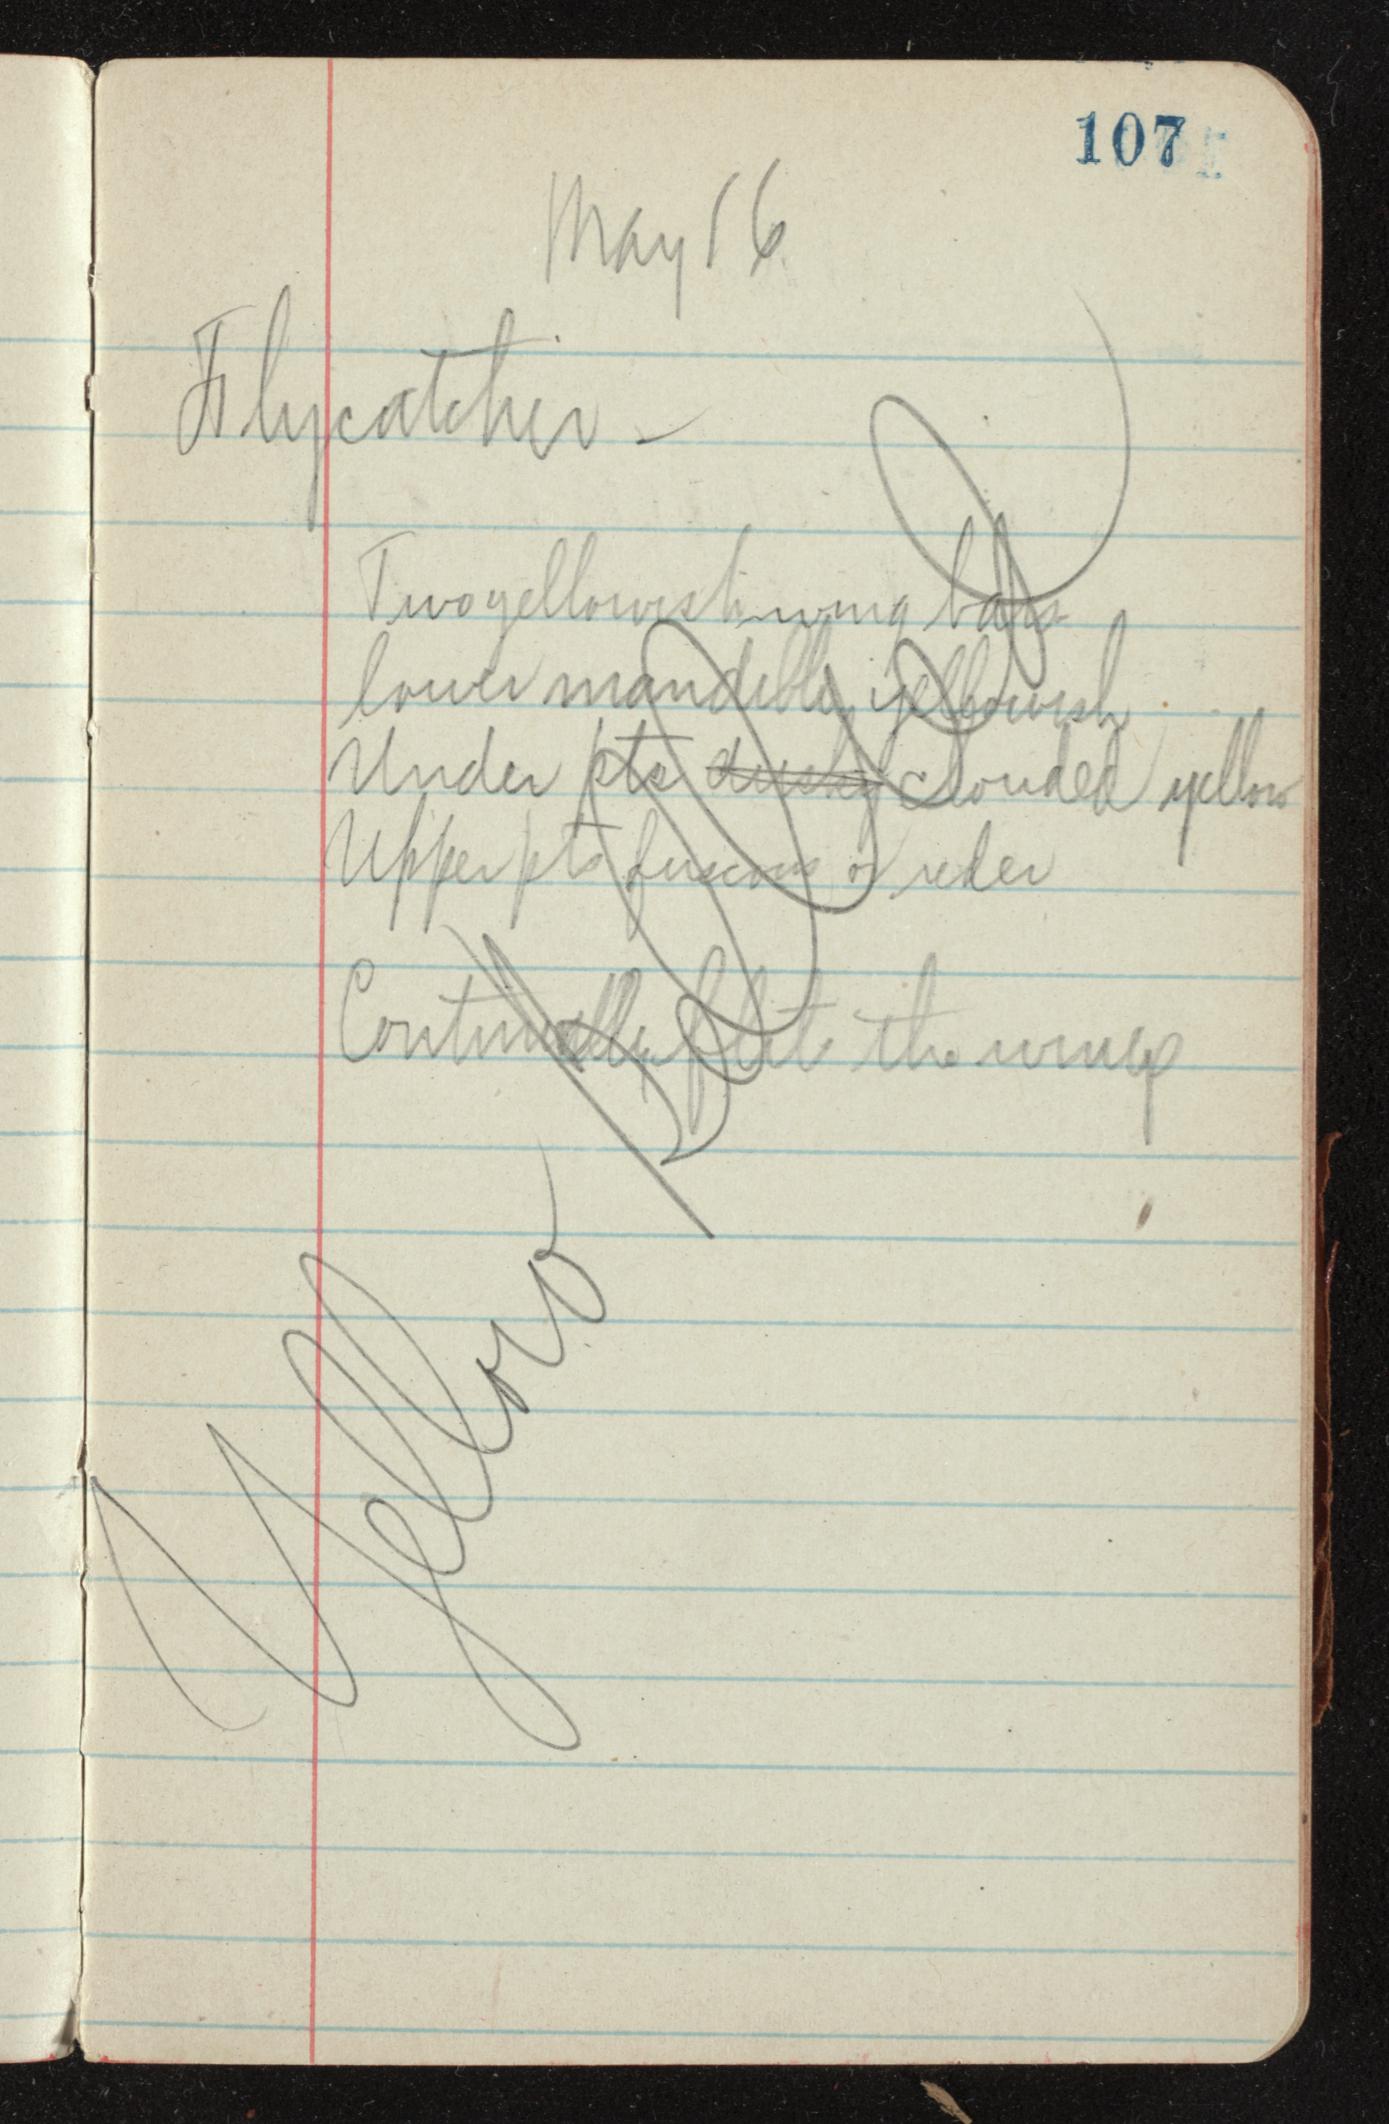 107
May 16
Flycatcher -
Two yellowish wing bars
lower mandible yellowish
Under pts dusky clouded yellow
Upper pts fuscous or
Continually flits the wings
Yellow Bellied